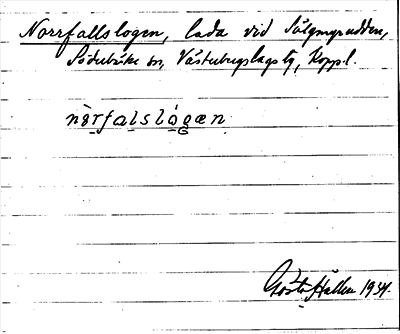 Norrfallslogen, lada vid Sälgmyrudden,
Söderbärke sn, Västerbergslags tg, Koppl.
nòrfalslògæn
Gösta Hallén 1934